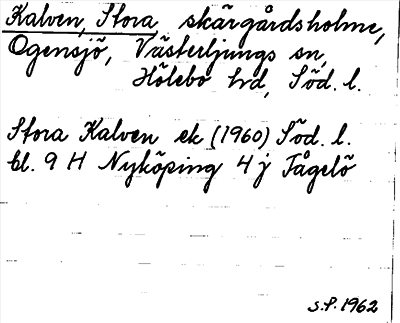 Kalven, Stora skärgårdsholme,
Ogensjö, Västerljungs sn,
Hölebo hd, Söd. l.
Stora Kalven ek (1960) Söd. l.
bl. 9 H Nyköping 4 j Fågelö
S.P. 1962